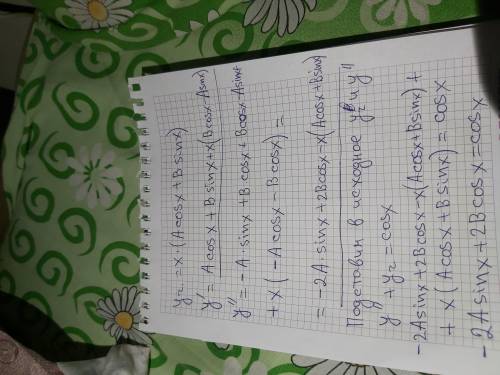 y₂ = x · (Acosx + Bsinx)
y' = Acosx + Bsinx + x(Bcosx - Asinx)
y'' = -A · sinx + Bcosx + Bcosx - Asinx +
+ x(-Acosx - Bcosx) =
= -2Asinx + 2Bcosx - x(Acosx + Bsinx)
Подставим в исходное y₂ и y''
y'' + y₂ = cosx
-2Asinx + 2Bcosx - x(Acosx + Bsinx) +
+ x(Acosx + Bsinx) = cosx
-2Asinx + 2Bcosx = cosx